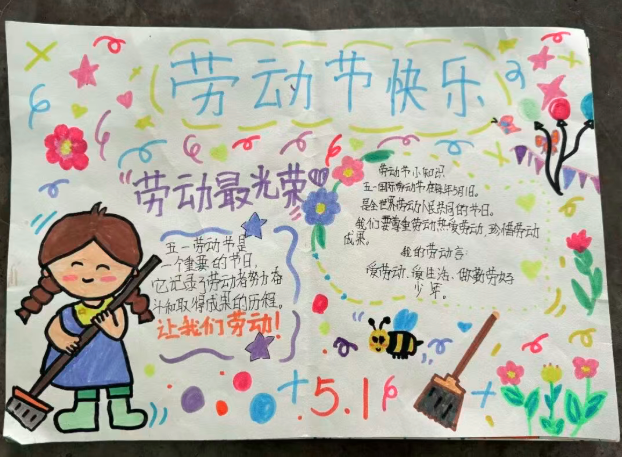 劳动节快乐
"劳动最光荣"
五一劳动节是
一个重要的节日,
它记录了劳动者努力奋
斗和取得成果的历程。
让我们劳动!
劳动节小知识
五一国际劳动节在每年5月1日。
是全世界劳动人民共同的节日。
我们要尊重劳动热爱劳动,珍惜劳动
成果。
我的劳动言
爱劳动,爱生活,做勤劳好
少年。
5.1